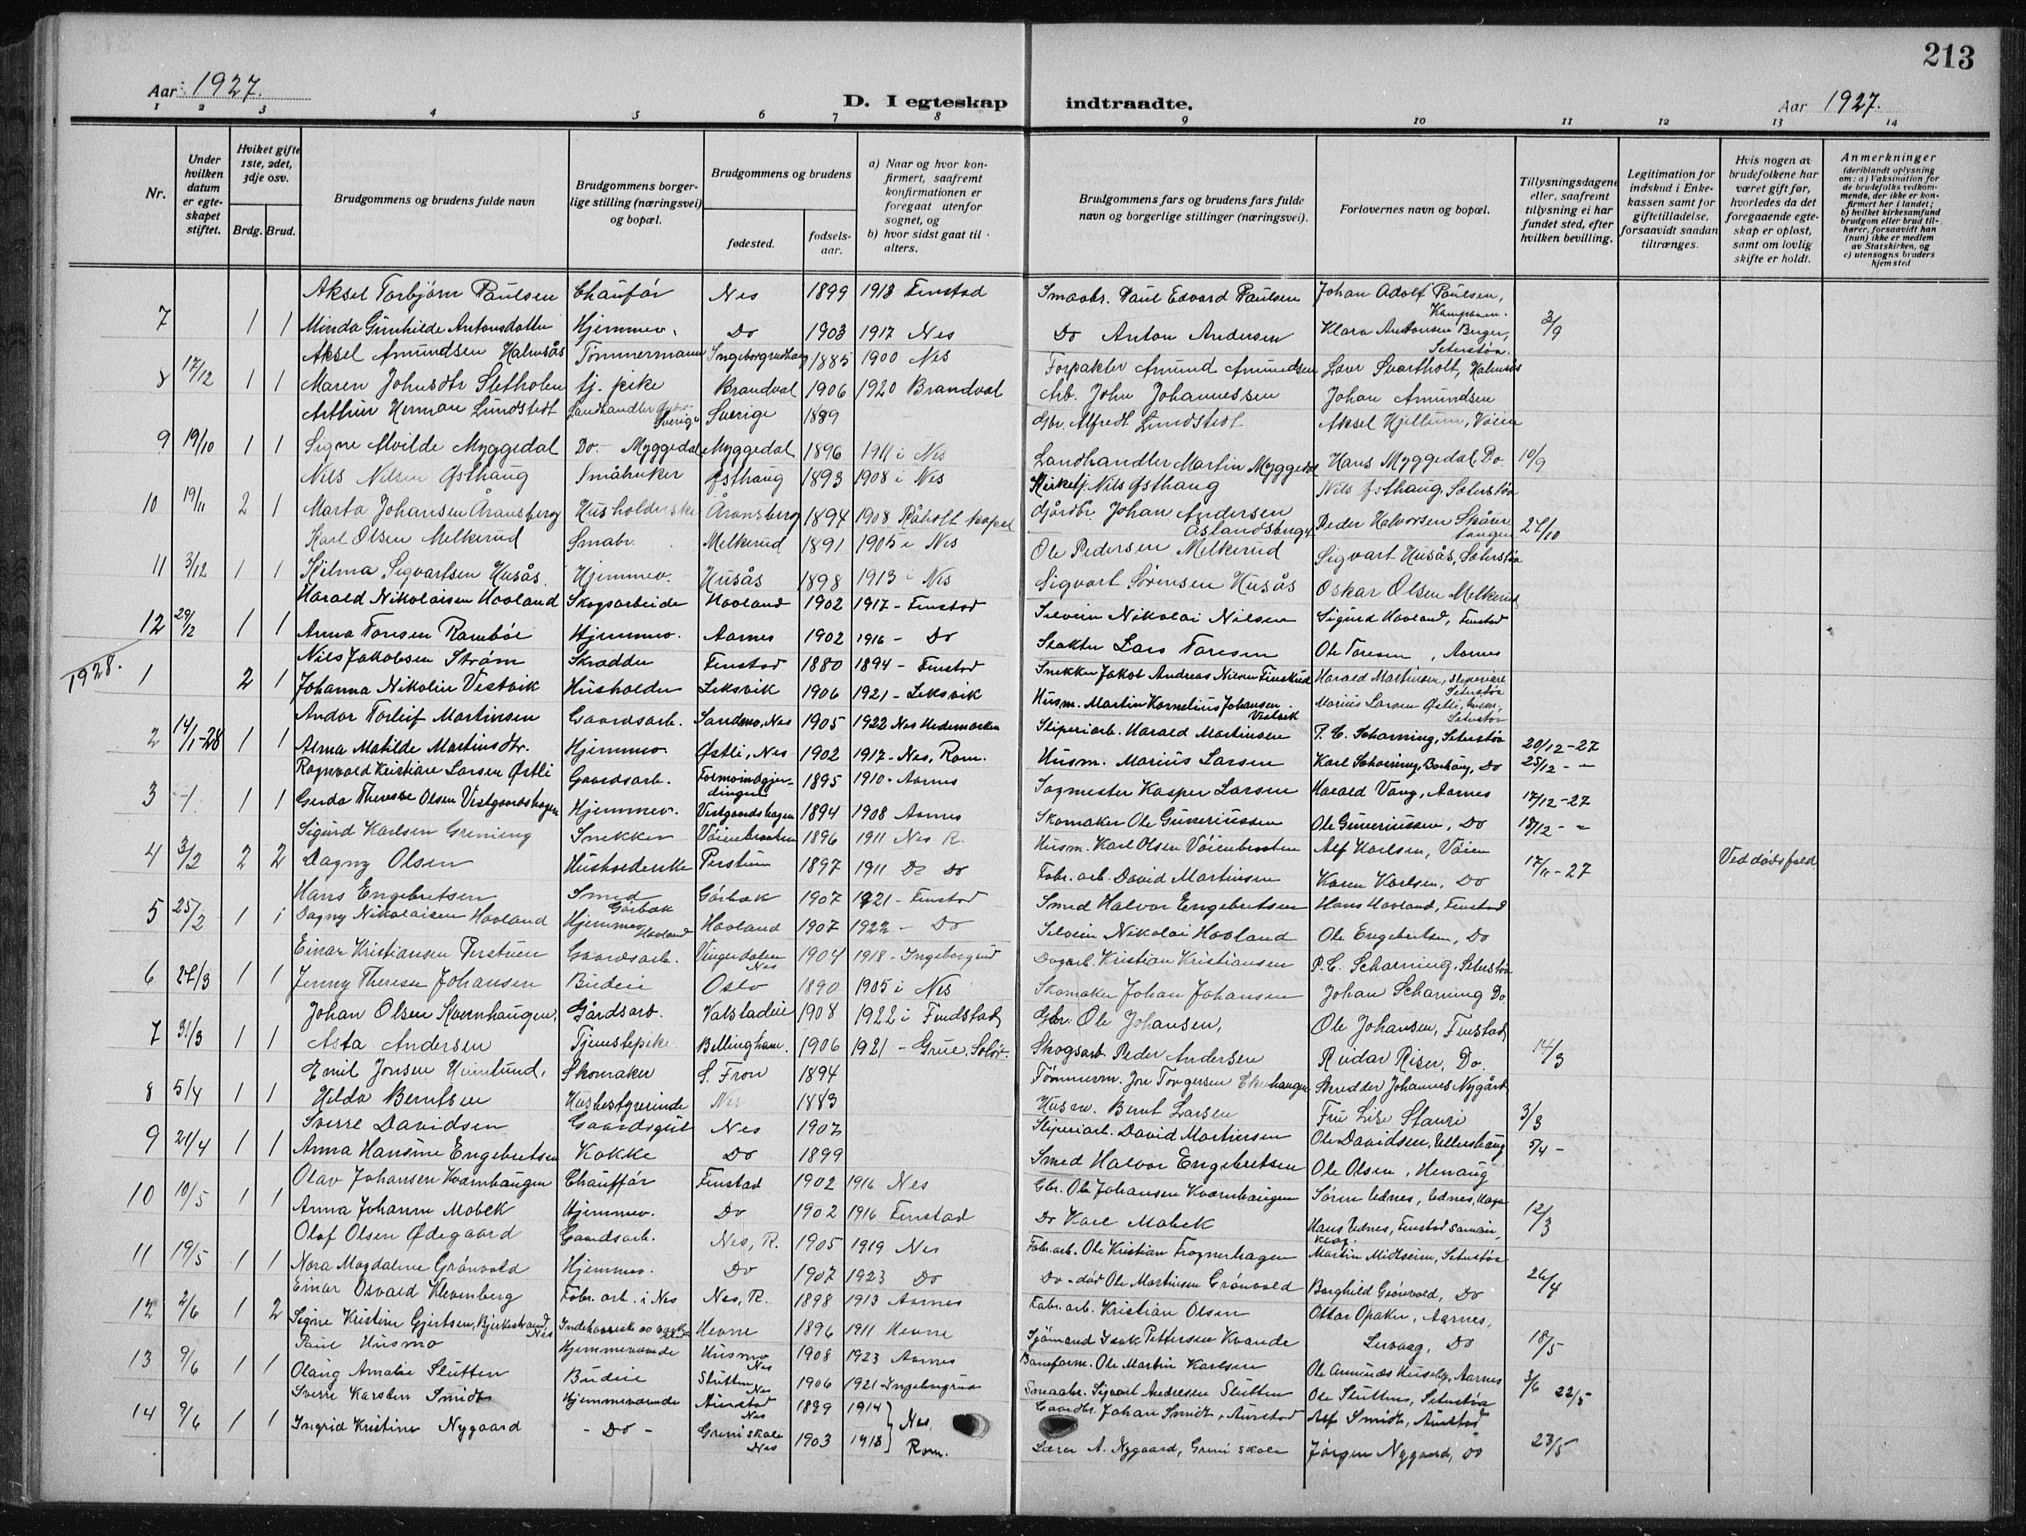 213
Aar 1927.
D. I egteskap indtraadte.
Aar 1927.
1 2 3 4 5 6 7 8 9 10 11 12 13 14
Nr.
Under hvilken datum er egteskapet stiftet.
Hviket gifte 1ste, 2det, 3dje osv.
Brdg. Brud.
Brudgommens og brudens fulde navn
Brudgommens borgerlige stilling (næringsvei) og bopæl.
Brudgommens og brudens
fødested.
fødselsaar.
a) Naar og hvor konfirmert, saafremt konfirmationen er foregaat utenfor sognet, og
b) hvor sidst gaat til alters.
Brudgommens fars og brudens fars fulde navn og borgerlige stillinger (næringsvei).
Forlovernes navn og bopæl.
Tillysningsdagene eller, saafremt tillysning ei har fundet sted, efter hvilken bevilling.
Legitimation for indskud i Enkekassen samt for giftetilladelse, forsaavidt saadan tiltrænges.
Hvis nogen av brudefolkene har været gift før, hvorledes da det foregaaende egteskap er opløst, samt om lovlig skifte er holdt.
Anmerkninger (deriblandt oplysning om: a) Vaksination for de brudefolks vedkommende, der ikke er konfirmert her i landet; b) hvilket kirkesamfund brudgom eller brud tilhører, forsaavidt han (hun) ikke er medlem av Statskirken, og c) utensogns bruders hjemsted
Aksel Torbjørn Paulsen Chaufør Nes 1899 1913 Fenstad Smaabr. Paul Edvard Paulsen Johan Adolf Paulsen, Kampaaen.
7 1 1 Minda Gunhilde Antonsdatter Hjemmev. Do 1903 1917 Nes Do Anton Andersen Klara Antonsen Berger, Seterstøa. 3/9
Aksel Amundsen Halmsås Tømmermann Ingeborgrudhaug 1885 1900 Nes Forpakter Amund Amundsen Lars Svartholt, Halmsås
8 17/12 1 1 Maren Johnsdtr Sletholen tj. pike Brandval 1906 1920 Brandval Arb. John Johannessen Johan Amundsen
Arthur Herman Lundstedt Landhandler Sverige Sverige 1889 Gbr. Alfredt Lundstedt Aksel Hjellum, Vøien
9 19/10 1 1 Signe Alvilde Myggedal Do- Myggedal Myggedal 1896 1911 i Nes Landhandler Martin Myggedal Hans Myggedal Do 10/9
Nils Nilsen Østhaug Småbruker Østhaug 1893 1908 i Nes Kirketj. Nils Østhaug Nils Østhaug, Seterstøa
10 19/11 2 1 Marta Johansen Åransberg Husholderske Åransberg 1894 1908 Råholt kapel Gårdbr. Johan Andersen Åslandsberget Peder Halvorsen Skårer tangen 27/10
Karl Olsen Melkerud Småbr. Melkerud 1891 1905 i Nes Ole Pedersen Melkerud Sigvart Husås, Seterstøa
11 3/12 1 1 Hilma Sigvartsen Husås. Hjemmev. Husås 1898 1913 i Nes Sigvart Sørensen Husås Oskar Olsen Melkerud
Harald Nikolaisen Hovland Skogsarbeide Hovland 1902 1917 - Fenstad Selveier Nikolai Nilsen Sigurd Hovland, Fenstad
12 29/12 1 1 Anna Toresen Rambøl Hjemmev. Aarnes 1902 1916 - Do Slakter Lars Toresen Ole Toresen, Aarnes
1928.
Nils Jakobsen Strøm Skrædder Fenstad 1880 1894 - Fenstad Snekker Jakob Andreas Nilsen Finskud Harald Martinsen, Sliperiarb Seterstøa
1 2 1 Johanna Nikoline Vestvik Husholder Leksvik 1906 1921 - Leksvik Husm. Martin Kornelius Johansen Vestvik Marius Larsen Østli, Husm. Seterstøa
Andor Torleif Martinsen Gaardsarb. Sandmo, Nes 1905 1922 Nes Hedemarken Sliperiarb. Harald Martinsen P. C. Scharning, Seterstøa 20/12-27
2 14/1-28 1 1 Alma Matilde Martinsdtr. Hjemmev. Østli, Nes 1902 1917 - Nes, Rom. Husm. Marius Larsen Karl Scharning, Borhaug, Do 25/12 - "
Ragnvald Kristian Larsen Østli Gaardsarb. 1895 1910 - Aarnes Sagmester Kasper Larsen Harald Vang, Aarnes 17/12-27
3 -1 1 1 Gerda Therese Olsen Vestgaardshagen Hjemmev. Vestgaardshagen 1894 1908 Aarnes Skomaker Ole Gunerinssen Ole Gunerinssen, Do 18/12 - "
Sigurd Karlsen Grening Snekker Vøienbraaten 1896 1911 Nes R. Husm. Karl Olsen Vøienbraaten Alf Karlsen, Vøien
4 3/2 2 2 Dagny Olsen Husholderske Perstuen 1897 1911 Do Do Fabr. arb. David Martinsen Karen Karlsen, Do 17/11-27 Ved dødsfald
Hans Engebretsen Smed Gårbak Gårbak 1907 1921 - Fenstad Smed Halvor Engebretsen Hans Hovland, Fenstad
5 25/2 1 1 Dagny Nikolaisen Hovland Hjemmev Hovland Hovland 1907 1922 - Do Selveier Nikolai Hovland Ole Engebretsen, Do
Einar Kristiansen Perstuen Gaardsarb. Vingerdalen Nes 1904 1918 - Ingeborgrud Dagarb. Kristian Kristiansen P. C. Scharning, Seterstøa
6 24/3 1 1 Jenny Therese Johansen Budeie Oslo 1890 1905 i Nes Skomaker Johan Johansen Johan Scharning Do
Johan Olsen Kvernhaugen, Gårdsarb. Valstadeie 1908 1922 i Fendstad, Gbr. Ole Johansen, Ole Johansen, Fenstad,
7 31/3 1 1 Asta Andersen Tjenestepike Bellingham. 1906 1921 - Grue, Solør. Skogsarb. Peder Andersen Reidar Riser, Do. 14/3
Emil Jonsen Heimlund, Skomaker S. Fron 1894 Tømmerm. Jon Torgersen Ekrehaugen Skredder Johannes Nygård
8 5/4 1 1 Helda Berntsen Husbestyrerinde Nes 1883 Husm. Bernt Larsen Fru Lise Stauri 3/3
Sverre Davidsen Gaardsgut Nes 1907 Sliperiarb. David Martinsen Ole Davidsen, Ullershaug
9 21/4 1 1 Anna Hansine Engebretsen Kokke Do 1899 Smed Halvor Engebretsen Ole Olsen, Henaug 5/4 -
Olav Johansen Kvernhaugen Chauffør Fenstad 1902 1916 Nes Gbr. Ole Johansen Kvernhaugen Søren Udnes, Udnes, Haga
10 10/5 1 1 Anna Johanne Mobek Hjemmev. Do 1902 1916 Fenstad Do Karl Mobek Hans Udnes, Fenstad 12/3
Olaf Olsen Ødegaard Gaardsarb. Nes, R. 1905 1919 Nes Fabr. arb. Ole Kristian Frognerhagen Martin Midtseim, Seterstøa
11 19/5 1 1 Nora Magdalene Grønvold Hjemmev. Do 1907 1923 Do Do - død Ole Martinsen Grønvold Borghild Grønvold, Do 26/4
Einar Osvald Klevenberg Fabr. arb. i Nes Nes, R. 1898 1913 Aarnes Fabr. arb. Kristian Olsen Ottar Opaker, Aarnes,
12 2/6 1 2 Signe Kristine Gjertsen, Bjerkestrand, Nes Hevne 1896 1911 Hevne Sjømand Isak Pettersen Kvande Do 18/5
Paul Husmo Hjemmeværende Husmo Nes 1908 1923 Aarnes Baneform. Ole Martin Karlsen Ole Amunds Huseby, Aarnes
13 9/6 1 1 Olaug Amalie Slutten Budeie Slutten Nes 1906 1921 Ingeborgrud Smaabr. Sigvart Andresen Slutten Ole Slutten, Seterstøa 3/6 22/5
Sverre Karsten Smidt Hjemmeværende Aunstad Nes 1899 1914 Nes, Gaardbr. Johan Smidt, Aunstad Alf Smidt, Aunstad
14 9/6 1 1 Ingrid Kristine Nygaard - Do - Greni skole Nes 1903 1918 Rom. Lærer A. Nygaard, Greni skole Jørgen Nygaard, Do 23/5